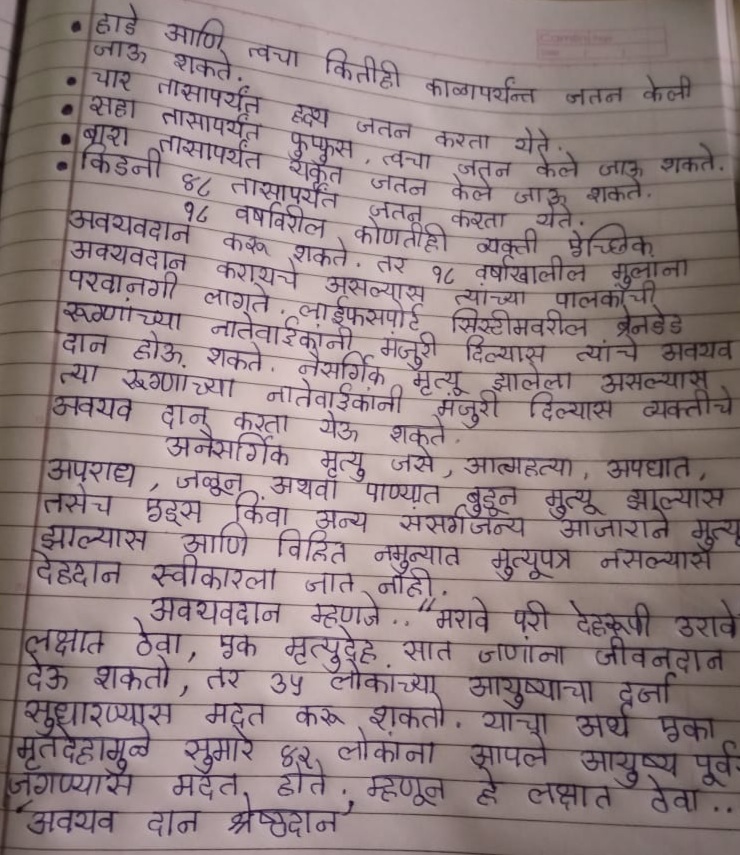 • हाडे आणि त्वचा कितीही काळापर्यन्त जतन केली
जाऊ शकते.
• चार तासापर्यंत हृदय जतन करता येते.
• सहा तासापर्यंत फुप्फुस, त्वचा जतन केले जाऊ शकते.
• बारा तासापर्यंत यकृत जतन केले जाऊ शकते.
• किडनी ४८ तासापर्यंत जतन करता येते.
१८ वर्षावरील कोणतीही व्यक्ती ऐच्छिक
अवयवदान करू शकते. तर १८ वर्षाखालील मुलांना
अवयवदान करायचे असल्यास त्यांच्या पालकांची
परवानगी लागते. लाईफसपोर्ट सिस्टीमवरील ब्रेनडेड
रूग्णांच्या नातेवाईकांनी मंजुरी दिल्यास त्यांचे अवयव
दान होऊ शकते. नैसर्गिक मृत्यू झालेला असल्यास
त्या रूग्णाच्या नातेवाईकांनी मंजुरी दिल्यास व्यक्तीचे
अवयव दान करता येऊ शकते.
अनैसर्गिक मृत्यु जसे, आत्महत्या, अपघात,
अपराध, जळून अथवा पाण्यात बुडून मुत्यू झाल्यास
तसेच एड्स किंवा अन्य संसर्गजन्य आजाराने मुत्यू
झाल्यास आणि विहित नमुन्यात मुत्यूपत्र नसल्यास
देहदान स्वीकारला जात नाही.
अवयवदान म्हणजे.. "मरावे परी देहरूपी उरावे
लक्षात ठेवा, एक मृत्युदेह सात जणांना जीवनदान
देऊ शकतो, तर ३५ लोकांच्या आयुष्याचा दर्जा
सुधारण्यास मदत करू शकतो. याचा अर्थ एका
मृतदेहामुळे सुमारे ४२ लोकांना आपले आयुष्य पूर्व
जगण्यास मदत होते. म्हणून हे लक्षात ठेवा..
'अवयव दान श्रेष्ठदान'